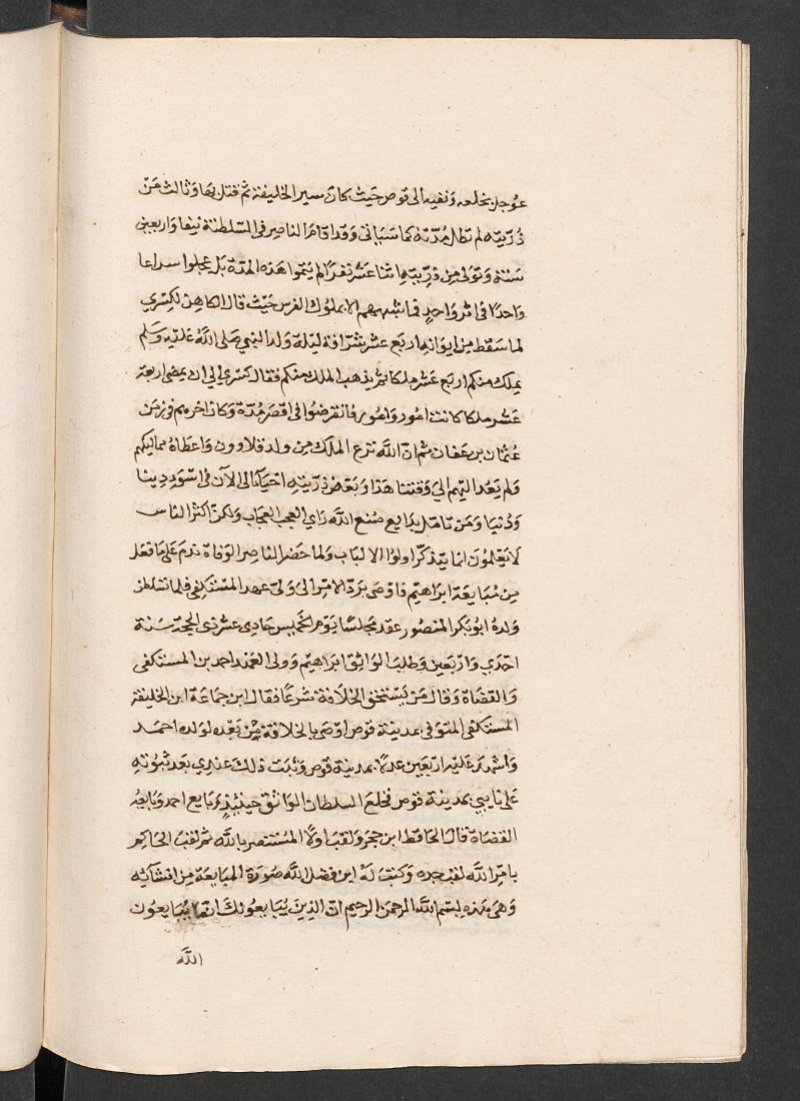 عوجل بخلعه ونفيه الى قوص حيث كان سير الخليفة ثم قتل بها وثالث من
ذريته لم تطل مدته كما سياتى وقد اقام الناصر فى السلطنة نيفا واربعين
سنة وتولى من ذريته اثنا عشر نفرا لم يتموا هذه المدة بل عجلوا سراعا
واحدا فى اثر واحد فما اشبههم الا بملوك الفرس حيث قال الكاهن لكسرى
لما سقط من ايوانه اربع عشر شرافة ليلة ولد النبى صلى الله عليه وسلم
يملك منكم اربع عشر ملكا ثم يذهب الملك منكم فقال كسرى الى ان يمضى اربعة
عشر ملكا كانت امور وامور فانقرضوا فى اقصر مدة وكان اخرهم فى زمن
عثمان بن عفان ثم ان الله نزع الملك من ولد قلاوون واعطاه مماليكهم
ولم يعد اليهم الى وقتنا هذا وبعض ذريته احياء الى الآن فى اسوء دينا
ودنيا ومن تامل بدايع صنع الله راي العجب العجاب ولكن اكثر الناس
لا يعلمون انما يتذكر اولوا الالباب ولما حضر الناصر الوفاة ندم على ما فعل
من مبايعة ابراهيم فاوصى برد الامر الى ولى عهد المستكفى فلما تسلطن
ولده ابو بكر المنصور عقد مجلسا يوم الخميس حادى عشر ذى الحجة سنة
احدي واربعين وطلب الواثق ابراهيم وولى العهد احمد بن المستكفى
والقضاة وقال من يستحق الخلافة شرعا فقال ابن جماعة ان الخليفة
المستكفى المتوفى بمدينة قوص اوصى بالخلافة من بعده لولده احمد
واشهد عليه اربعين عدلا بمدينة قوص وثبت ذلك عندى بعد ثبوته
على نايبى بمدينة قوص فخلع السلطان الواثق حينئذ وبايع احمد وبايعه
القضاة قال الحافظ ابن حجر ولقب اولا المستنصر بالله ثم لقب الحاكم
بامر الله لقب جده وكتب له ابن فضل الله صورة المبايعة من انشائه
وهى هذه بسم الله الرحمن الرحيم ان الذين يبايعونك انما يبايعون
الله